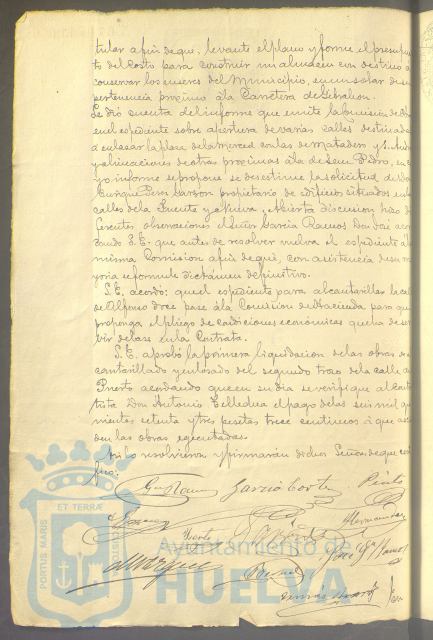 tular a fin de que, levante el plano y forme el presupues
to del costo para construir un almacen con destino a
conservar los enseres del Municipio, en un solar de su
pertenencia proximo á la Carretera de Gibraleon.
Se dió cuenta del informe que emite la Comision de
en el expediente sobre apertura de varias calles destinadas
á enlazar la plaza de la Merced con las de Matadero y S. Andr
y alineaciones de otras proximas á la de San Pedro, en c
yo informe se propone se desestime la solicitud de Don
Enrique Perez Garzon propietario de edificios situados en la
calles de la Fuente y Nueva. Abierta discusion hizo di
ferentes observaciones el Señor Garcia Ramos Don José acor
dando S.E. que antes de resolver vuelva el expediente á la
misma Comision a fin de que, con asistencia de su ma
yoria reformule dictámen definitivo.
S.E. acordó; que el expediente para alcantarillar la calle
de Alfonso doce pase á la Comision de Hacienda para que
proponga el pliego de condiciones económicas que ha de ser
vir de base en la Contrata.
S.E. aprobó la primera liquidacion de las obras de al
cantarillado y enlosado del segundo trozo de la calle del
Puerto acordando que en su dia se verifique al contra
tista Don Antonio el pago de las seis mil qui
nientas setenta y tres pesetas trece centimos á que as
den las obras ejecutadas.
Asi lo resolvieron y firmarán dichos Señores de que cer
tifico:
Garcia Cortes Pinto
Hernandez
José Gª Ramos
Marquez
PORTUS MARIS ET TERRÆ CUSTODIA
Ayuntamiento de
HUELVA